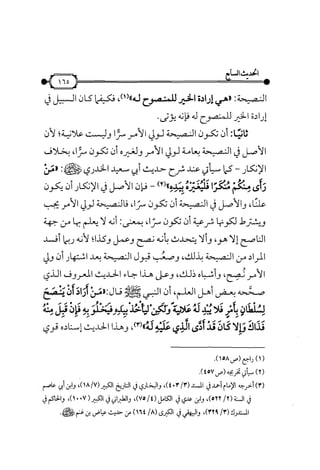 الحديث السابع
١٦٥
النصيحة: «هي إرادة الخير للمنصوح له»(١)، فكيفما كان السبيل في
إرادة الخير للمنصوح له فإنه يؤتى.
ثانيًا: أن تكون النصيحة لولي الأمر سرًّا وليست علانية؛ لأن
الأصل في النصيحة بعامة لولي الأمر ولغيره أن تكون سرًّا، بخلاف
الإنكار - كما سيأتي عند شرح حديث أبي سعيد الخدري ﵁: «مَنْ
رَأَى مِنْكُمْ مُنْكَرًا فَلْيُغَيِّرْهُ بِيَدِهِ»(٢) - فإن الأصل في الإنكار أن يكون
علنًا، والأصل في النصيحة أن تكون سرًّا، فالنصيحة لولي الأمر يجب
ويشترط لكونها شرعية أن تكون سرًّا، بمعنى: أنه لا يعلم بها من جهة
الناصح إلا هو، وألا يتحدث بأنه نصح وعمل وكذا؛ لأنه ربما أفسد
المراد من النصيحة بذلك، وصعُب قبول النصيحة بعد اشتهار أن ولي
الأمر نُصِح، وأشباه ذلك، وعلى هذا جاء الحديث المعروف الذي
صححه بعض أهل العلم، أن النبي ﷺ قال: «مَنْ أَرَادَ أَنْ يَنْصَحَ
لِسُلْطَانٍ بِأَمْرٍ فَلَا يُبْدِ لَهُ عَلَانِيَةً وَلَكِنْ لِيَأْخُذْ بِيَدِهِ فَيَخْلُوَ بِهِ فَإِنْ قَبِلَ مِنْهُ
فَذَاكَ وَإِلَّا كَانَ قَدْ أَدَّى الَّذِي عَلَيْهِ لَهُ»(٣)، وهذا الحديث إسناده قوي
(١) راجع (ص١٥٨).
(٢) سيأتي تخريجه (ص٤٥٧).
(٣) أخرجه الإمام أحمد في المسند (٣/ ٤٠٣)، والبخاري في التاريخ الكبير (٧/ ١٨)، وابن أبي عاصم
في السنة (٢/ ٥٢٢)، وابن عدي في الكامل (٤/ ٧٥)، والطبراني في الكبير (١٠٠٧)، والحاكم في
المستدرك (٣/ ٣٢٩)، والبيهقي في الكبرى (٨/ ١٦٤) من حديث عياض بن غنم ﵁.